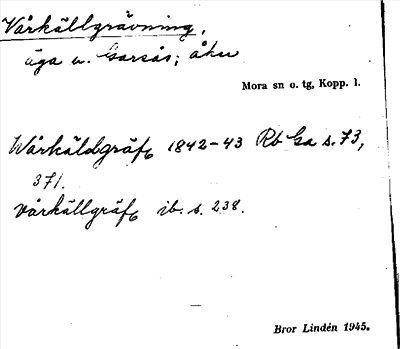 Vårkällgrävning,
äga u. Garsås; åker
Mora sn o. tg, Kopp. l.
Wårkäldgräf 1842-43 Rb Ga s. 73,
371.
Vårkällgräf ib. s. 238.
Bror Lindén 1945.